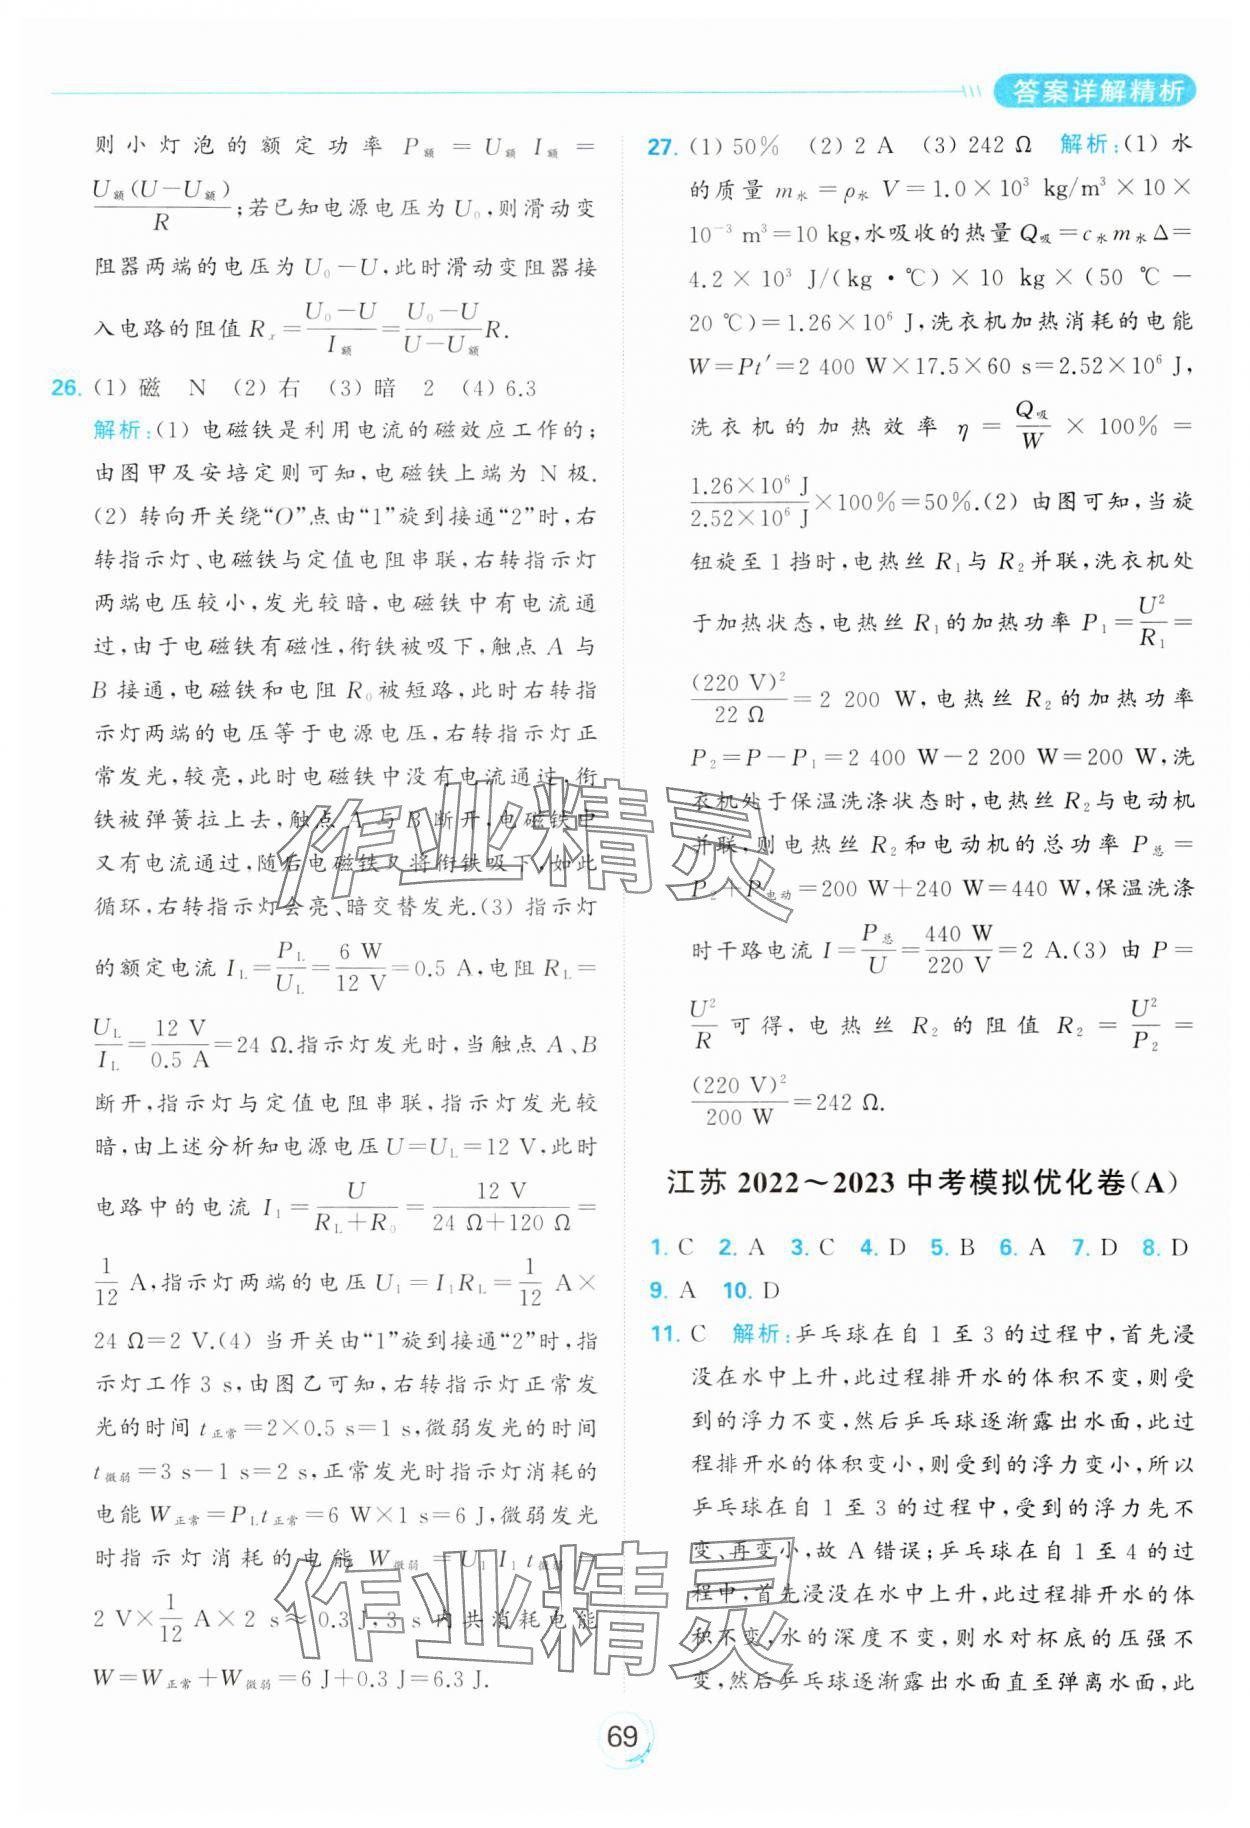 答案详解精析
则小灯泡的额定功率 P额 = U额 I额 =
U额(U−U额)/R;若已知电源电压为 U₀,则滑动变
阻器两端的电压为 U₀−U,此时滑动变阻器接
入电路的阻值 Rₓ=(U₀−U)/I额=(U₀−U)/(U−U额)R.
26. (1)磁 N (2)右 (3)暗 2 (4)6.3
解析:(1)电磁铁是利用电流的磁效应工作的;
由图甲及安培定则可知,电磁铁上端为 N 极.
(2)转向开关绕“O”点由“1”旋到接通“2”时,右
转指示灯、电磁铁与定值电阻串联,右转指示灯
两端电压较小,发光较暗,电磁铁中有电流通
过,由于电磁铁有磁性,衔铁被吸下,触点 A 与
B 接通,电磁铁和电阻 R₀被短路,此时右转指
示灯两端的电压等于电源电压,右转指示灯正
常发光,较亮,此时电磁铁中没有电流通过,衔
铁被弹簧拉上去,触点 A 与 B 断开,电磁铁中
又有电流通过,随后电磁铁又将衔铁吸下,如此
循环,右转指示灯会亮、暗交替发光.(3)指示灯
的额定电流 I_L=P_L/U_L=6 W/12 V=0.5 A,电阻 R_L=
U_L/I_L=12 V/0.5 A=24 Ω.指示灯发光时,当触点 A、B
断开,指示灯与定值电阻串联,指示灯发光较
暗,由上述分析知电源电压 U=U_L=12 V,此时
电路中的电流 I₁=U/(R_L+R₀)=12 V/(24 Ω+120 Ω)=
1/12 A,指示灯两端的电压 U₁=I₁R_L=1/12 A×
24 Ω=2 V.(4)当开关由“1”旋到接通“2”时,指
示灯工作 3 s,由图乙可知,右转指示灯正常发
光的时间 t正常=2×0.5 s=1 s,微弱发光的时间
t微弱=3 s−1 s=2 s,正常发光时指示灯消耗的
电能 W正常=P_L t正常=6 W×1 s=6 J,微弱发光
时指示灯消耗的电能 W微弱=U₁ I₁ t微弱=
2 V×1/12 A×2 s≈0.3 J,3 s 内共消耗电能
W=W正常+W微弱=6 J+0.3 J=6.3 J.
27. (1)50% (2)2 A (3)242 Ω 解析:(1)水
的质量 m水=ρ水 V=1.0×10³ kg/m³×10×
10⁻³ m³=10 kg,水吸收的热量 Q吸=c水m水Δ=
4.2×10³ J/(kg·℃)×10 kg×(50 ℃−
20 ℃)=1.26×10⁶ J,洗衣机加热消耗的电能
W=Pt′=2 400 W×17.5×60 s=2.52×10⁶ J,
洗衣机的加热效率 η=Q吸/W×100%=
1.26×10⁶ J/2.52×10⁶ J×100%=50%.(2)由图可知,当旋
钮旋至 1 挡时,电热丝 R₁与 R₂并联,洗衣机处
于加热状态,电热丝 R₁的加热功率 P₁=U²/R₁=
(220 V)²/22 Ω=2 200 W,电热丝 R₂的加热功率
P₂=P−P₁=2 400 W−2 200 W=200 W,洗
衣机处于保温洗涤状态时,电热丝 R₂与电动机
并联,则电热丝 R₂和电动机的总功率 P总=
P₂+P电动=200 W+240 W=440 W,保温洗涤
时干路电流 I=P总/U=440 W/220 V=2 A.(3)由 P=
U²/R可得,电热丝 R₂的阻值 R₂=U²/P₂=
(220 V)²/200 W=242 Ω.
江苏 2022~2023 中考模拟优化卷(A)
1. C 2. A 3. C 4. D 5. B 6. A 7. D 8. D
9. A 10. D
11. C 解析:乒乓球在自 1 至 3 的过程中,首先浸
没在水中上升,此过程排开水的体积不变,则受
到的浮力不变,然后乒乓球逐渐露出水面,此过
程排开水的体积变小,则受到的浮力变小,所以
乒乓球在自 1 至 3 的过程中,受到的浮力先不
变、再变小,故 A 错误;乒乓球在自 1 至 4 的过
程中,首先浸没在水中上升,此过程排开水的体
积不变,水的深度不变,则水对杯底的压强不
变,然后乒乓球逐渐露出水面直至弹离水面,此
69
作业精灵
作业精灵